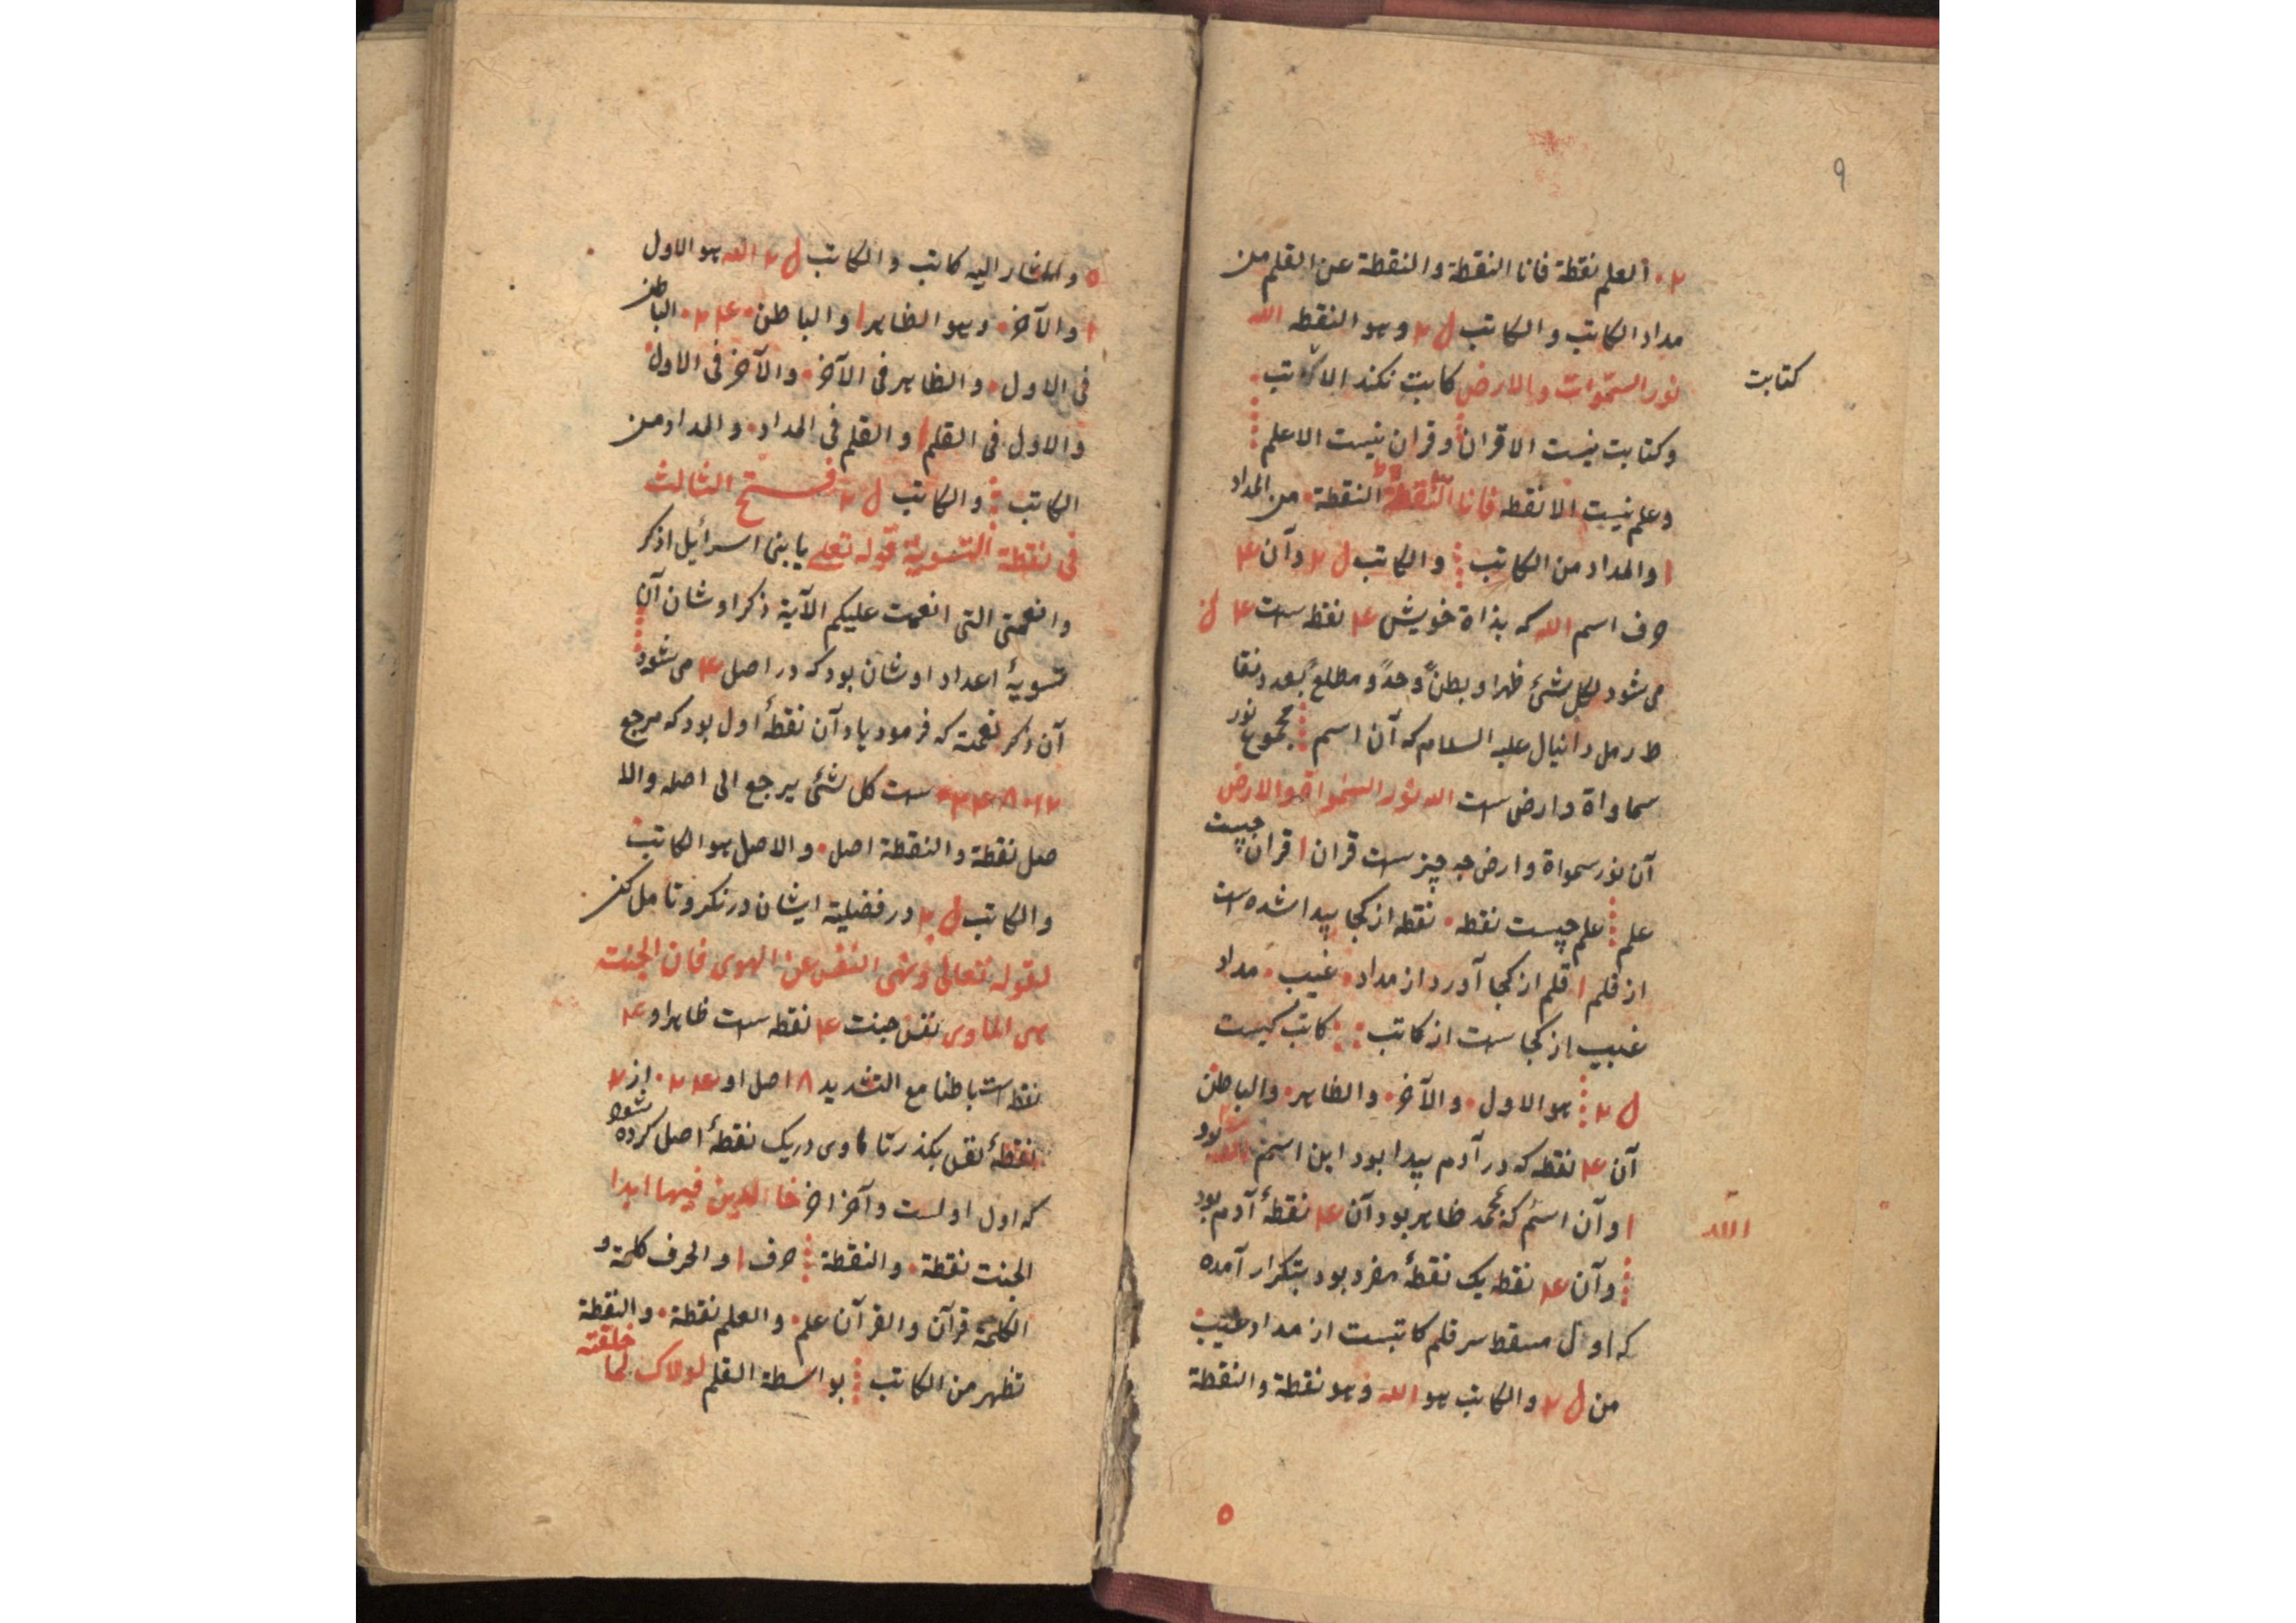 ۹
۲ • العلم نقطة فانا النقطة والنقطة عن القلم من
مداد الکاتب والکاتب ل ۲ وهو النقطه الله
نور السّموات والارض کابت نکند الا کاتب
کتابت
وکتابت نیست الا قران وقران نیست الا علم
وعلم نیست الا نقطه فانا النقطة النقطة • من المداد
ا والمداد من الکاتب والکاتب ل ۲ وآن ۴
حرف اسم الله که بذاة خویش ۴ نقطه ست ۴
می شود لکل شئ ظهرا وبطنً وحدً ومطلعً بعدد نقا
ط رمل دانیال علیه السلام که آن اسم مجموع نور
سماواة وارض ست الله نور السّمواة والارض
آن نور سمواة وارض چه چیز ست قران ا قران چیست
علم علم چیست نقطه • نقطه از کجا پیدا شده ست
از قلم ا قلم از کجا آورد از مداد • غیب • مداد
غیب از کجا ست از کاتب کاتب کیست
ل ۲ هو الاول • والآخر • والظاهر • والباطن
آن ۴ نقطه که در آدم پیدا بود این اسم الله بود
ا وآن اسم که محمد ظاهر بود آن ۴ نقطهٔ آدم بود
الله
وآن ۴ نقطه یک نقطهٔ مفرد بود بتکرار آمده
که اول مسقط سر قلم کاتبست از مداد غیب
من ل ۲ والکاتب هو الله وهو نقطة والنقطة
۵
۵ والمشار الیه کاتب والکاتب ل ۲ الله هو الاول
ا والآخر • وهو الظاهر ا والباطن • ۴ ۲ • الباطن
فی الاول • والظاهر فی الآخر • والآخر فی الاول
والاول فی القلم ا والقلم فی المداد • والمداد من
الکاتب والکاتب ل ۲ فتح الثالث
فی نقطة التسویة قوله تعلی یا بنی اسرائیل اذکر
وا نعمتی التی انعمت علیکم الآیة ذکر اوشان آن
تسویهٔ اعداد اوشان بود که در اصل ۴ می شود
آن ذکر نعمة که فرمود یاد آن نقطهٔ اول بود که مرجع
ست کل شئ یرجع الی اصله والا
صل نقطة والنقطة اصل • والاصل هو الکاتب
والکاتب ل ۲ در فضلیة ایشان در نکر وتامل کن
لقوله تعالی ونهی النفس عن الهوی فان الجنت
هی الماوی نفس جنت ۴ نقطه ست ظاهرا و ۴
نقطه است باطنا مع التشدید ۸ اصل او ۴ ۲ • از ۲
نقطهٔ نفس بکذر تا ماوی در یک نقطهٔ اصل کرده شود
که اول اولست وآخر اخر خالدین فیها ابدا
الجنت نقطة • والنقطة حرف ا والحرف کلمة و
الکلمة قرآن والقرآن علم • والعلم نقطة • والنقطة
تظهر من الکاتب بواسطة القلم لولاک لما خلقته